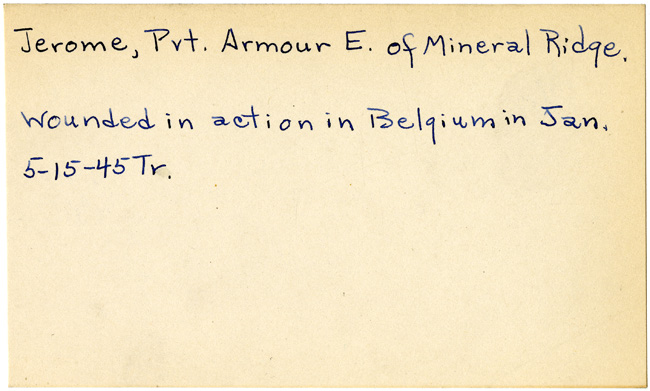 Jerome, Pvt. Armour E. of Mineral Ridge.
Wounded in action in Belgium in Jan.
5-15-45 Tr.